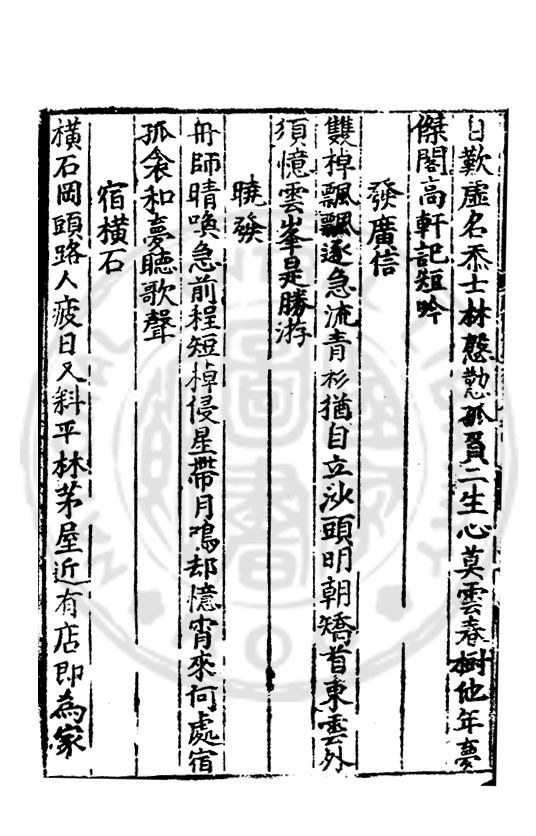 自歎虛名忝士林慇懃孤負二生心莫雲春樹他年夢
傑閣高軒記短吟
發廣信
雙棹飄飄逐急流青衫猶自立沙頭明朝矯首東雲外
須憶雲峯是勝游
曉發
舟師晴喚急前程短棹侵星帶月鳴却憶宵來何處宿
孤衾和夢聽歌聲
宿橫石
橫石岡頭路人疲日又斜平林茅屋近有店即為家